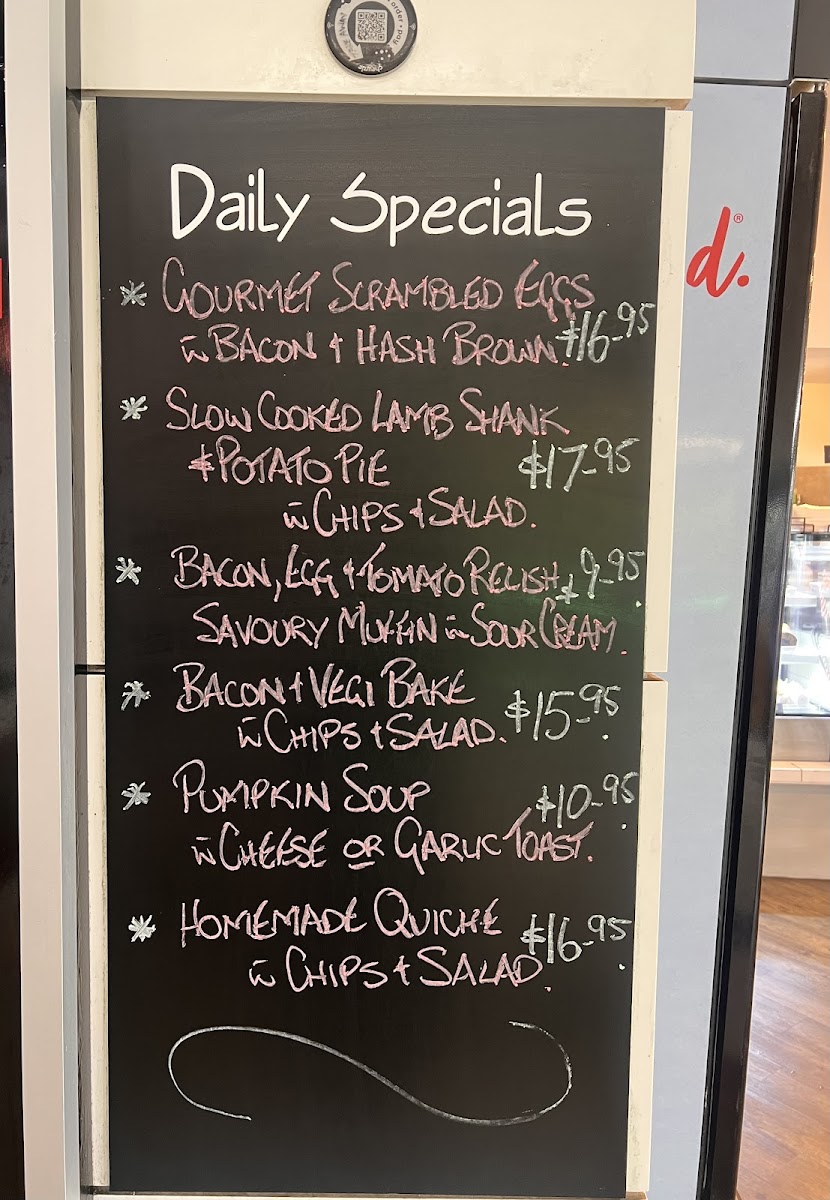 order • pay
Daily Specials
* GOURMET SCRAMBLED EGGS
w BACON & HASH BROWN. $16-95
* SLOW COOKED LAMB SHANK
& POTATO PIE $17-95
w CHIPS & SALAD.
* BACON, EGG & TOMATO RELISH $9-95
SAVOURY MUFFIN w SOUR CREAM.
* BACON & VEGI BAKE $15-95
w CHIPS & SALAD.
* PUMPKIN SOUP $10-95
w CHEESE OR GARLIC TOAST.
* HOMEMADE QUICHE $16-95
w CHIPS & SALAD.
d.®